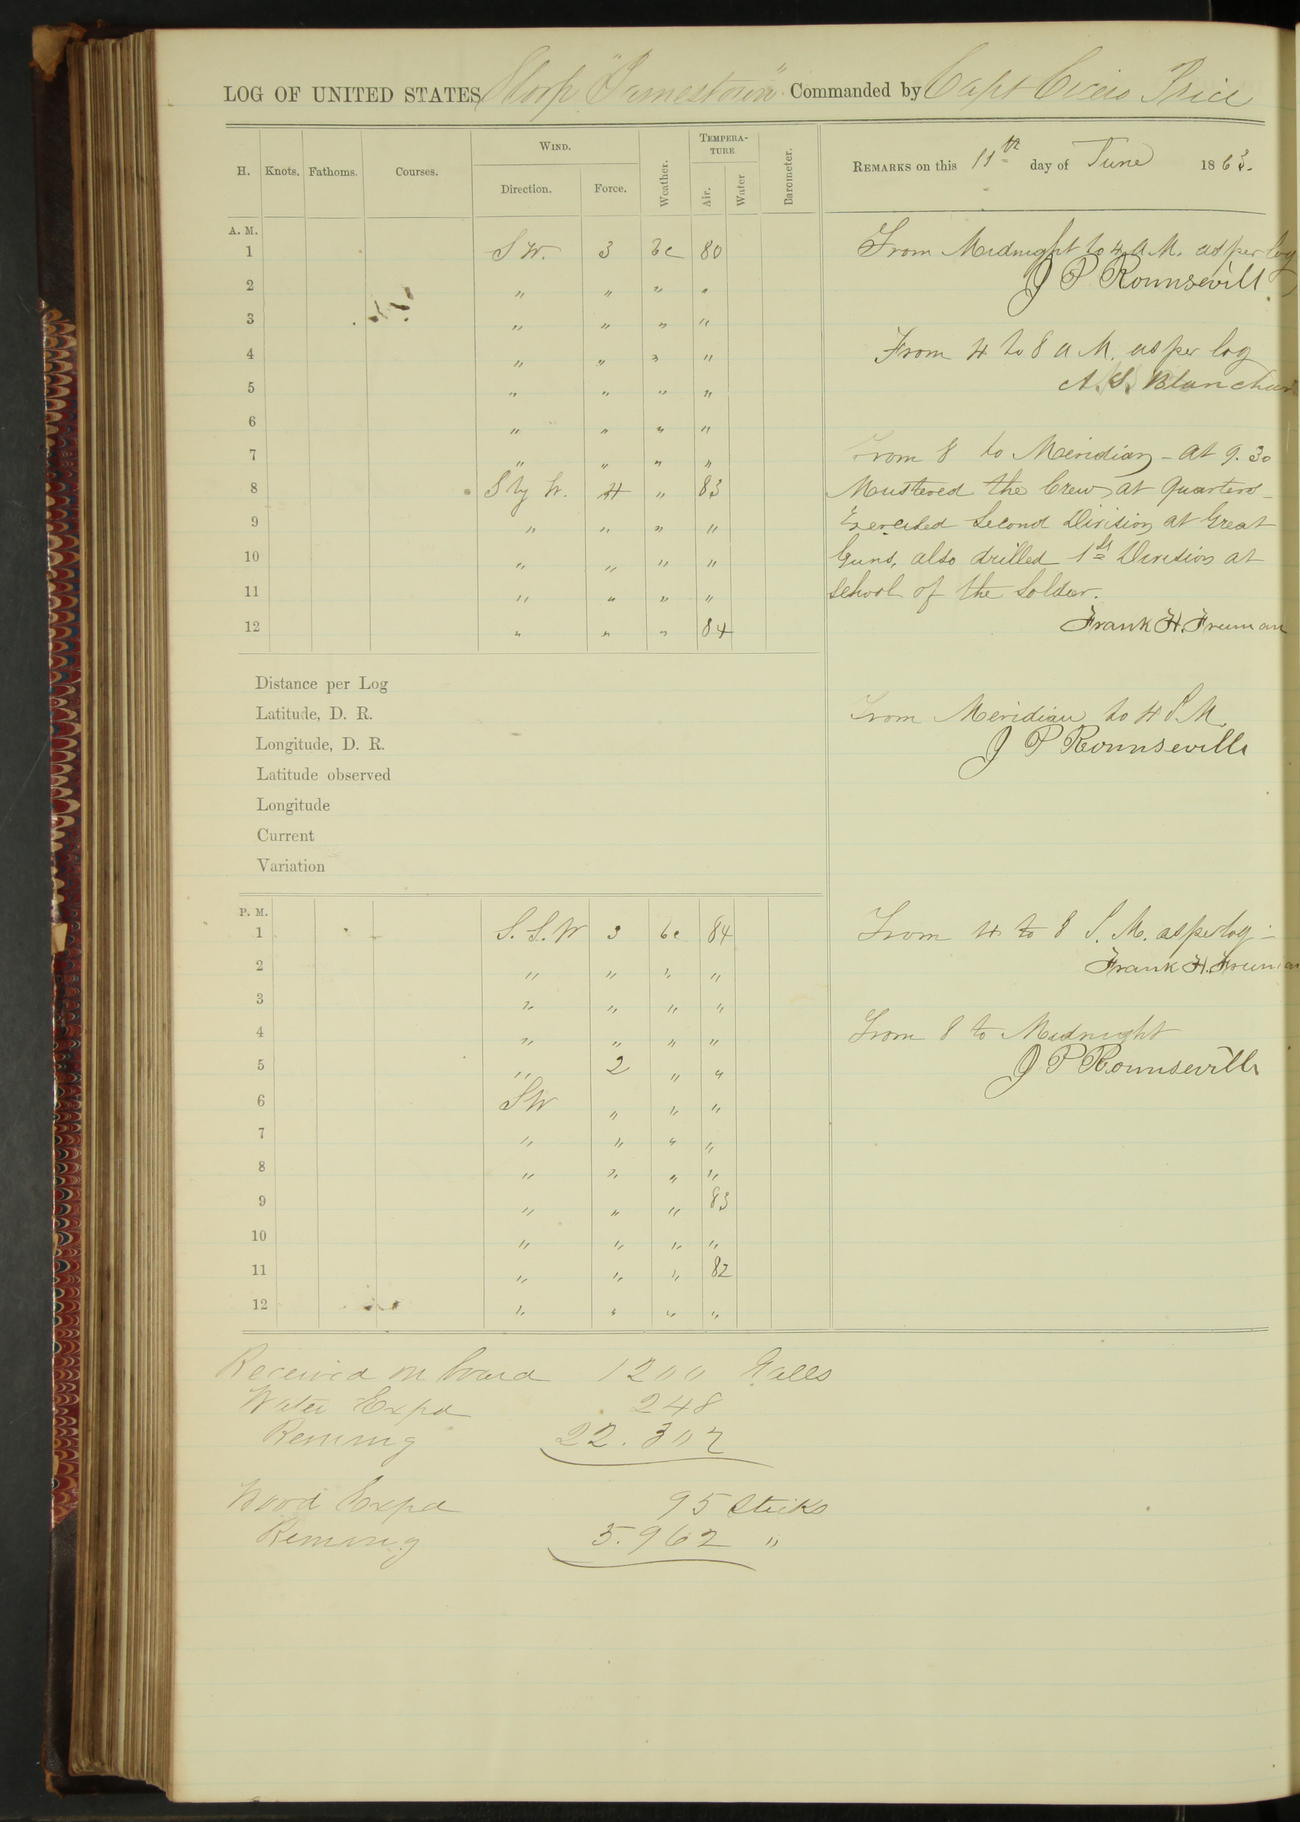 LOG OF UNITED STATES Sloop "Jamestown" Commanded by Capt Cicero Price
H. Knots. Fathoms. Courses. WIND. Direction. Force. Weather. TEMPERATURE Air. Water Barometer. REMARKS on this 11th day of June 1863.
A. M.
1 S W. 3 bc 80
2 " " " "
3 " " " "
4 " " " "
5 " " " "
6 " " " "
7 " " " "
8 S by W. 4 " 83
9 " " " "
10 " " " "
11 " " " "
12 " " " 84
From Midnight to 4 A M. as per log
J P Rounsevill
From 4 to 8 A M. as per log
A. S. Blanchar
From 8 to Meridian - At 9.30
Mustered the Crew at Quarters -
Exercised Second Division at Great
Guns, also drilled 1st Division at
school of the Soldier.
Frank H. Freeman
Distance per Log
Latitude, D. R.
Longitude, D. R.
Latitude observed
Longitude
Current
Variation
From Meridian to 4 P M
J P Rounsevill
P. M.
1 S. S. W 3 bc 84
2 " " " "
3 " " " "
4 " " " "
5 " 2 " "
6 SW " " "
7 " " " "
8 " " " "
9 " " " 83
10 " " " "
11 " " " 82
12 " " " "
From 4 to 8 P. M. as per log -
Frank H. Freeman
From 8 to Midnight
J P Rounsevill
Received on board 1200 Galls
Water Expd 248
Remng 22.307
Wood Expd 95 Sticks
Remng 5.962 "